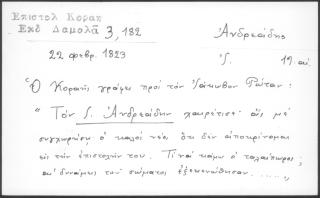 Ἐπιστολ Κοραῆ
Ἐκδ Δαμαλᾶ 3, 182
Ἀνδρεάδης
22 φεβρ. 1823
Ὁ Κοραῆς γράφει πρὸς τὸν Ἰάκωβον Ρώταν:
"Τὸν Ι. Ἀνδρεάδην χαιρέτισέ· ἄς μὲ
συγχωρήσῃ ὁ καλὸς νέος, ὅτι δὲν ἀποκρίνομαι
εἰς τὴν ἐπιστολήν του. Τί νὰ κάμω ὁ ταλαίπωρος;
αἱ δυνάμεις τοῦ σώματος ἐξεκενώθησαν......,